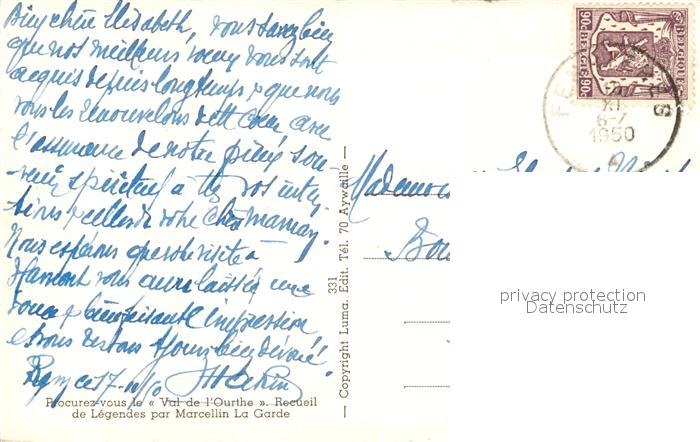 Bien chère Elisabeth, vous savez bien
que nos meilleurs voeux vous sont
acquis depuis longtemps & que nous
vous les renouvelons de tt coeur avec
l'assurance de notre
spirituel à vos
& celles de votre chère maman.
Nous espérons que votre visite à
Hamont vous aura laissé une
douce & bienfaisante impression
& nous restons tjours bien dévoués!
ce 17-
Procurez-vous le « Val de l'Ourthe ». Recueil
de Légendes par Marcellin La Garde
— Copyright Luma. Edit. Tél. 70 Aywaille —
331
90c BELGIE BELGIQUE 90c
XI
6-7
1950
privacy protection
Datenschutz